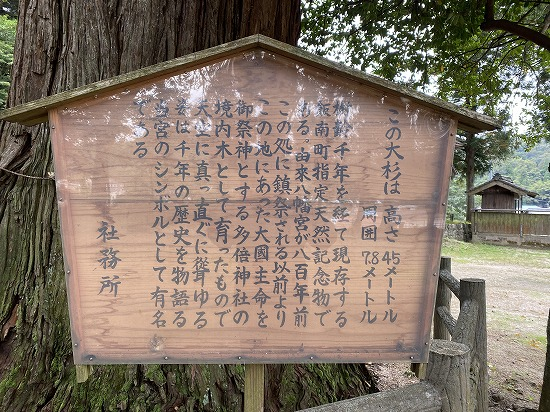 この大杉は 高さ 45メートル
周囲 7.8メートル
樹齢千年を経て現存する
飯南町指定天然記念物で
ある。由来八幡宮が八百年前
この処に鎮祭される以前より
この地にあった大國主命を
御祭神とする多倍神社の
境内木として育ったもので
大空に真っ直ぐに聳ゆる
姿は千年の歴史を物語る
当宮のシンボルとして有名
である
社務所